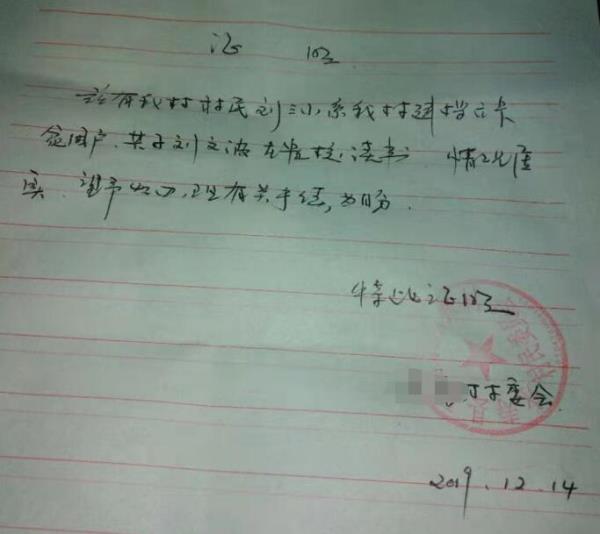 证 明
兹有我村村民刘三小,系我村建档立卡
贫困户.其子刘文波在贵校读书 情况属
实.望予以办理有关手续,为盼.
特此证明
村委会
2019.12.14